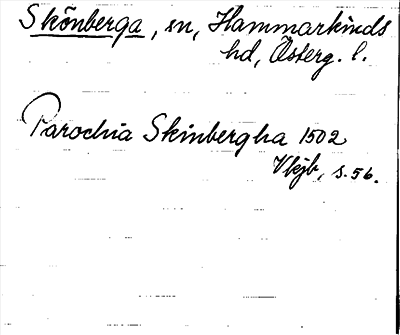 Skönberga, sn, Hammarkinds
hd, Österg. l.
Parochia Skinbergha 1502
Vkjb, s. 56.